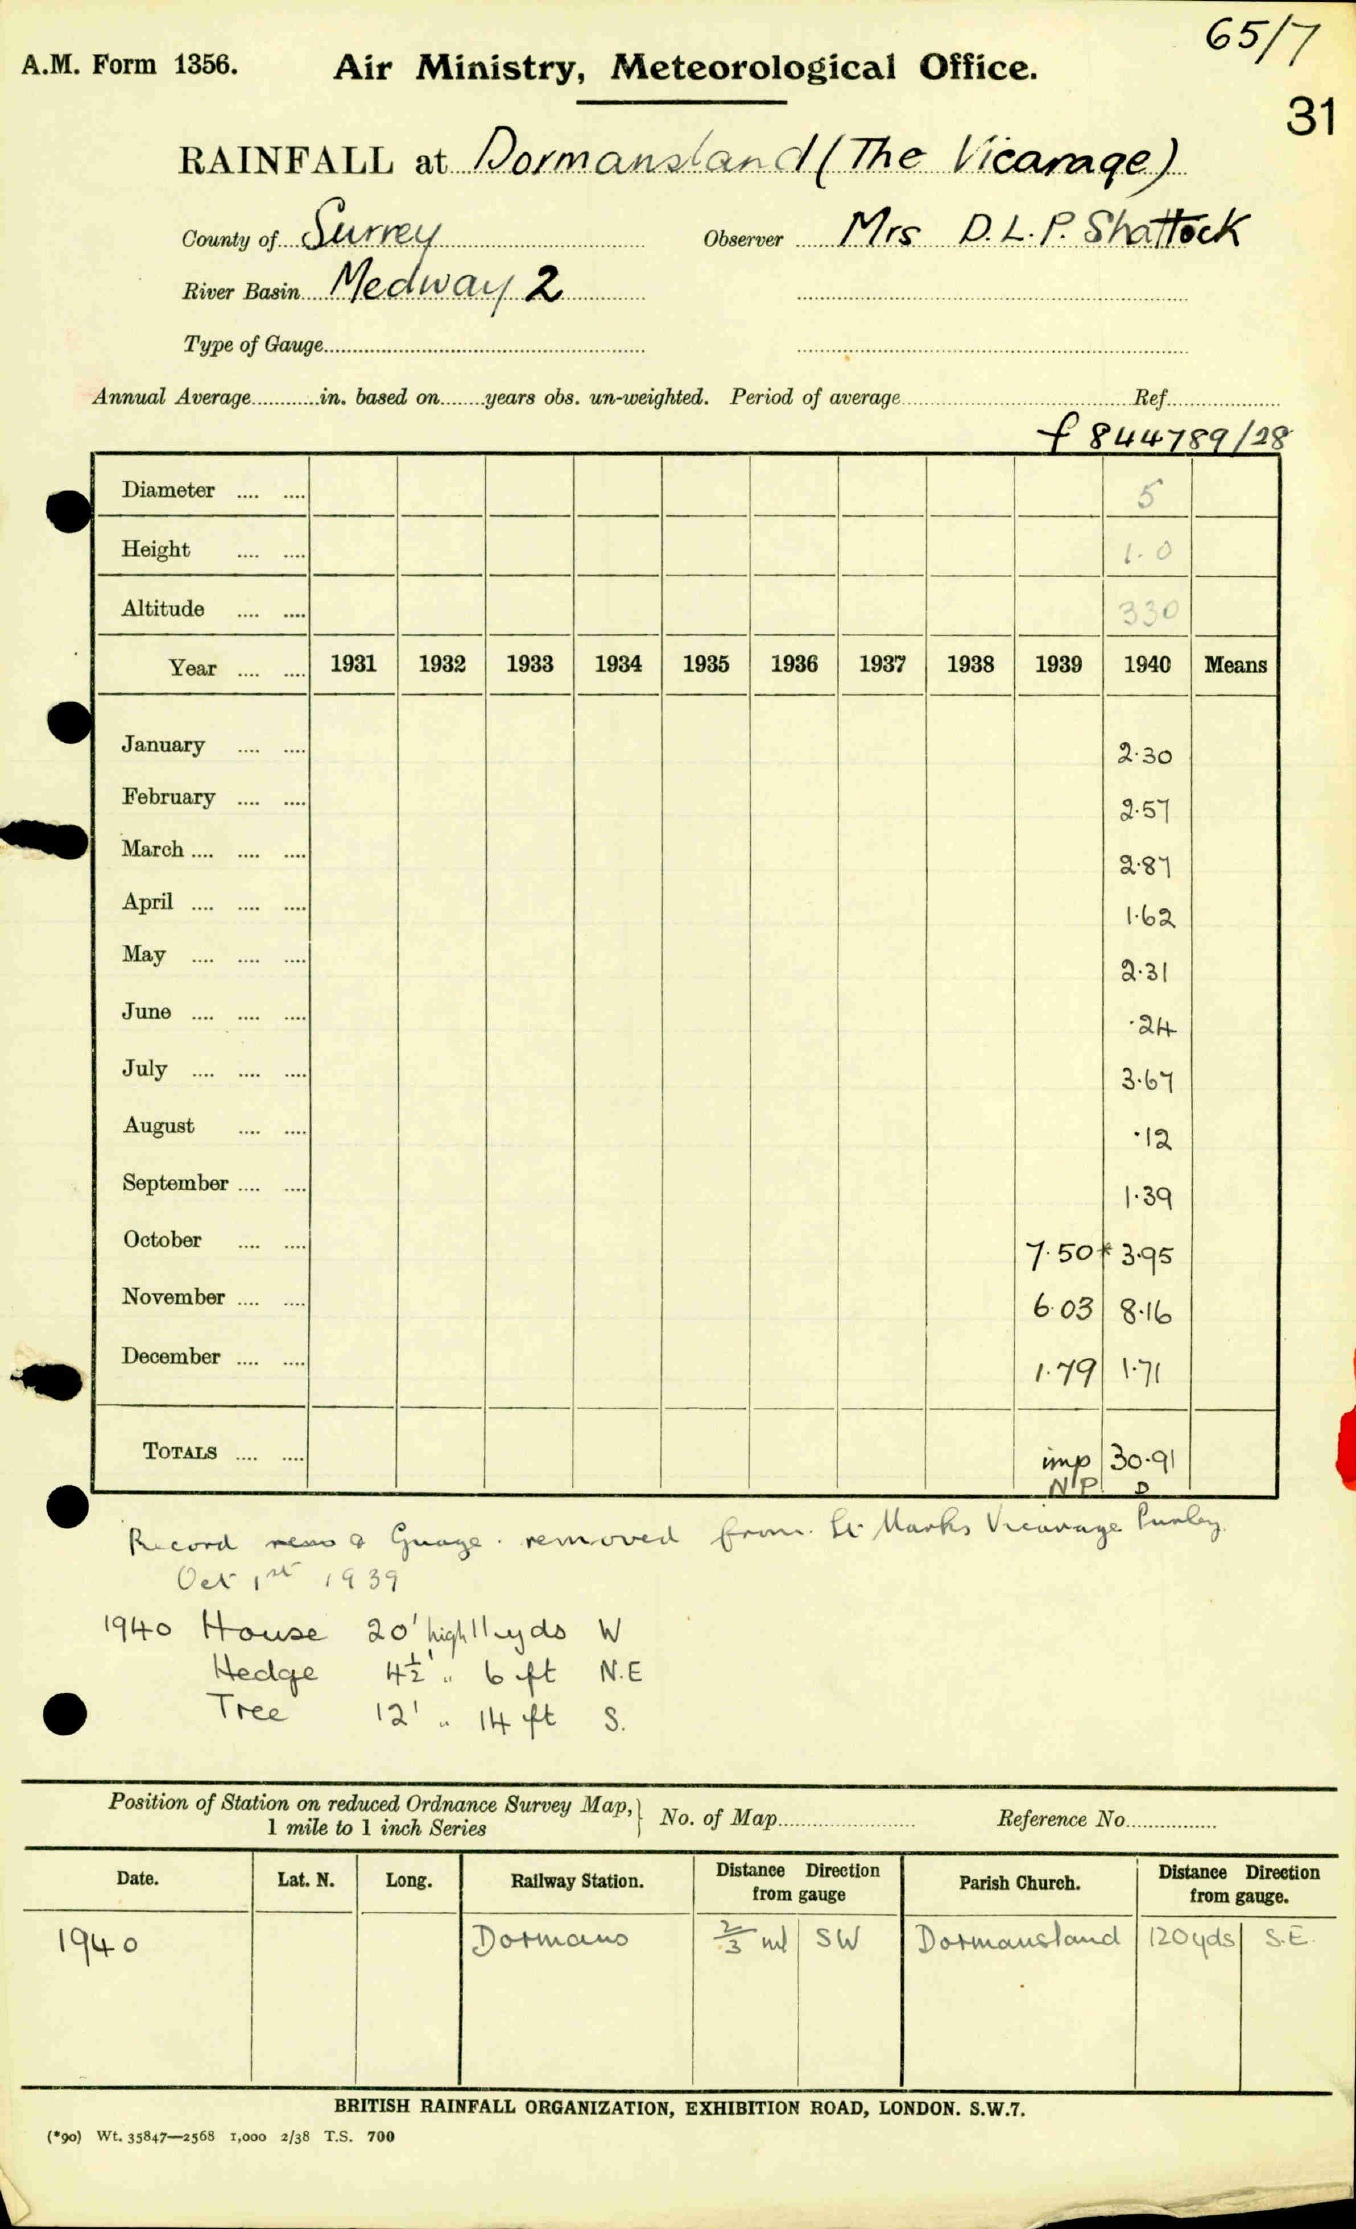 65/7
A.M. Form 1356. Air Ministry, Meteorological Office.
31
RAINFALL at Dormansland (The Vicarage)
County of Surrey Observer Mrs D.L.P. Shattock
River Basin Medway 2
Type of Gauge
Annual Average in. based on years obs. un-weighted. Period of average Ref
f 844789/28
Diameter 5
Height 1.0
Altitude 330
Year 1931 1932 1933 1934 1935 1936 1937 1938 1939 1940 Means
January 2.30
February 2.57
March 2.87
April 1.62
May 2.31
June .24
July 3.67
August .12
September 1.39
October 7.50* 3.95
November 6.03 8.16
December 1.79 1.71
TOTALS imp 30.91
NP D
Record Guage. removed from St Marks Vicarage Purley
Oct 1st 1939
1940 House 20' high 11 yds W
Hedge 4½' " 6 ft N.E
Tree 12' " 14 ft S.
Position of Station on reduced Ordnance Survey Map, } No. of Map Reference No
1 mile to 1 inch Series
Date. Lat. N. Long. Railway Station. Distance Direction from gauge Parish Church. Distance Direction from gauge.
1940 Dormans 2/3 ml SW Dormansland 120 yds S.E.
BRITISH RAINFALL ORGANIZATION, EXHIBITION ROAD, LONDON. S.W.7.
(*90) Wt. 35847—2568 1,000 2/38 T.S. 700